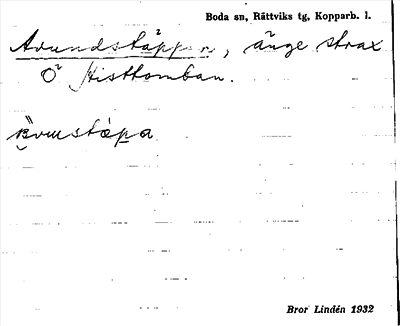 Boda sn, Rättviks tg, Kopparb. l.
Arundstäppan, änge strax
Ö Histtomban.
Bror Lindén 1932